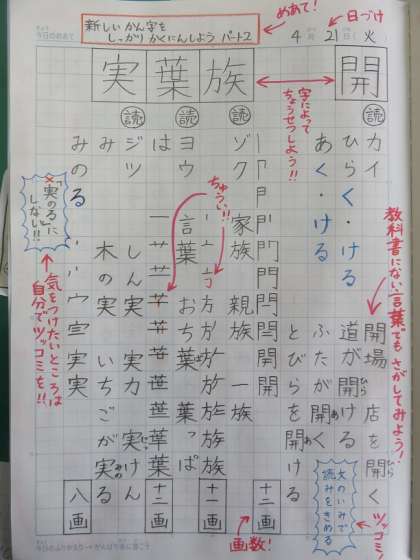 今日のめあて
新しいかん字を
しっかりかくにんしよう パート2
めあて!
日づけ
4月21日(火)
開
読
カイ 開場 店を開く
ひらく・ける 道が開ける
あく・ける ふたが開く
とびらを開ける
門 門 門 開 開 十二画
族
読
ゾク 家族 親族 一族
方 族 族 十一画
葉
読
ヨウ 言葉
は おち葉 葉っぱ
葉 十二画
実
読
ジツ しん実 実力 実けん
み 木の実 いちごが実る
みのる
実 実 八画
字によって
ちょうせつしよう!!
ちゅうい!!
教科書にない言葉でもさがしてみよう!
文のいみで
読みをきめる
ツッコミ!
画数!
×「実のる」に
しない!!
気をつけたいところは
自分でツッコミを!!